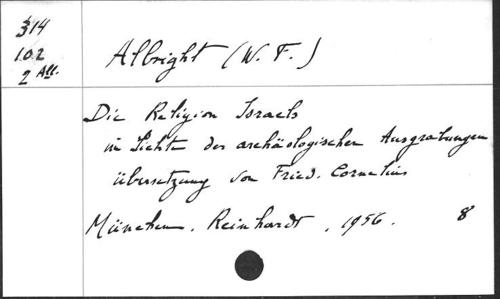 314
102
2 All.
Albright (W. F.)
Die Religion Israels
im Lichte der archäologischen Ausgrabungen
übersetzung von Fried. Cornelius
München, Reinhardt, 1956. 8